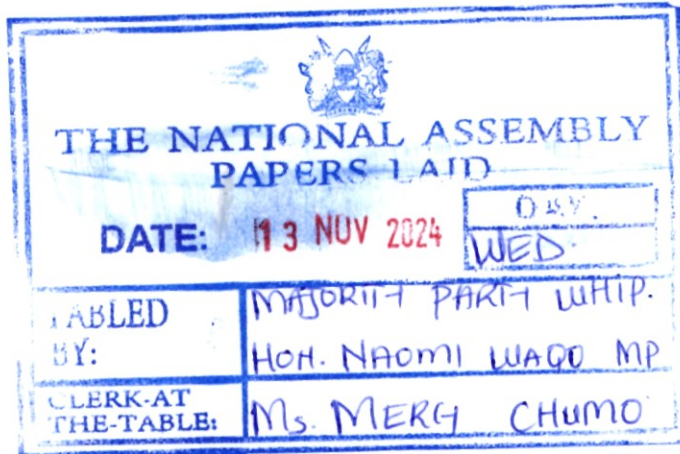 THE NATIONAL ASSEMBLY
PAPERS LAID
DATE: 13 NOV 2024
DAY.
WED.
TABLED BY:
MAJORITY PARTY WHIP.
HON. NAOMI WAQO MP
CLERK-AT THE-TABLE:
Ms. MERCY CHUMO